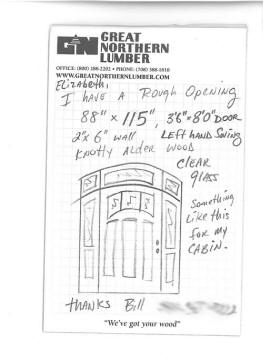 GREAT
NORTHERN
LUMBER
OFFICE: (800) 388-2202 • PHONE: (708) 388-1610
WWW.GREATNORTHERNLUMBER.COM
Elizabeth,
I HAVE A Rough Opening
88" x 115", 3'6" x 8'0" DOOR
2" x 6" wall LEFT HAND Swing
KNOTTY Alder WOOD
CLEAR
glass
Something
Like this
for my
CABIN.
THANKS Bill
"We've got your wood"